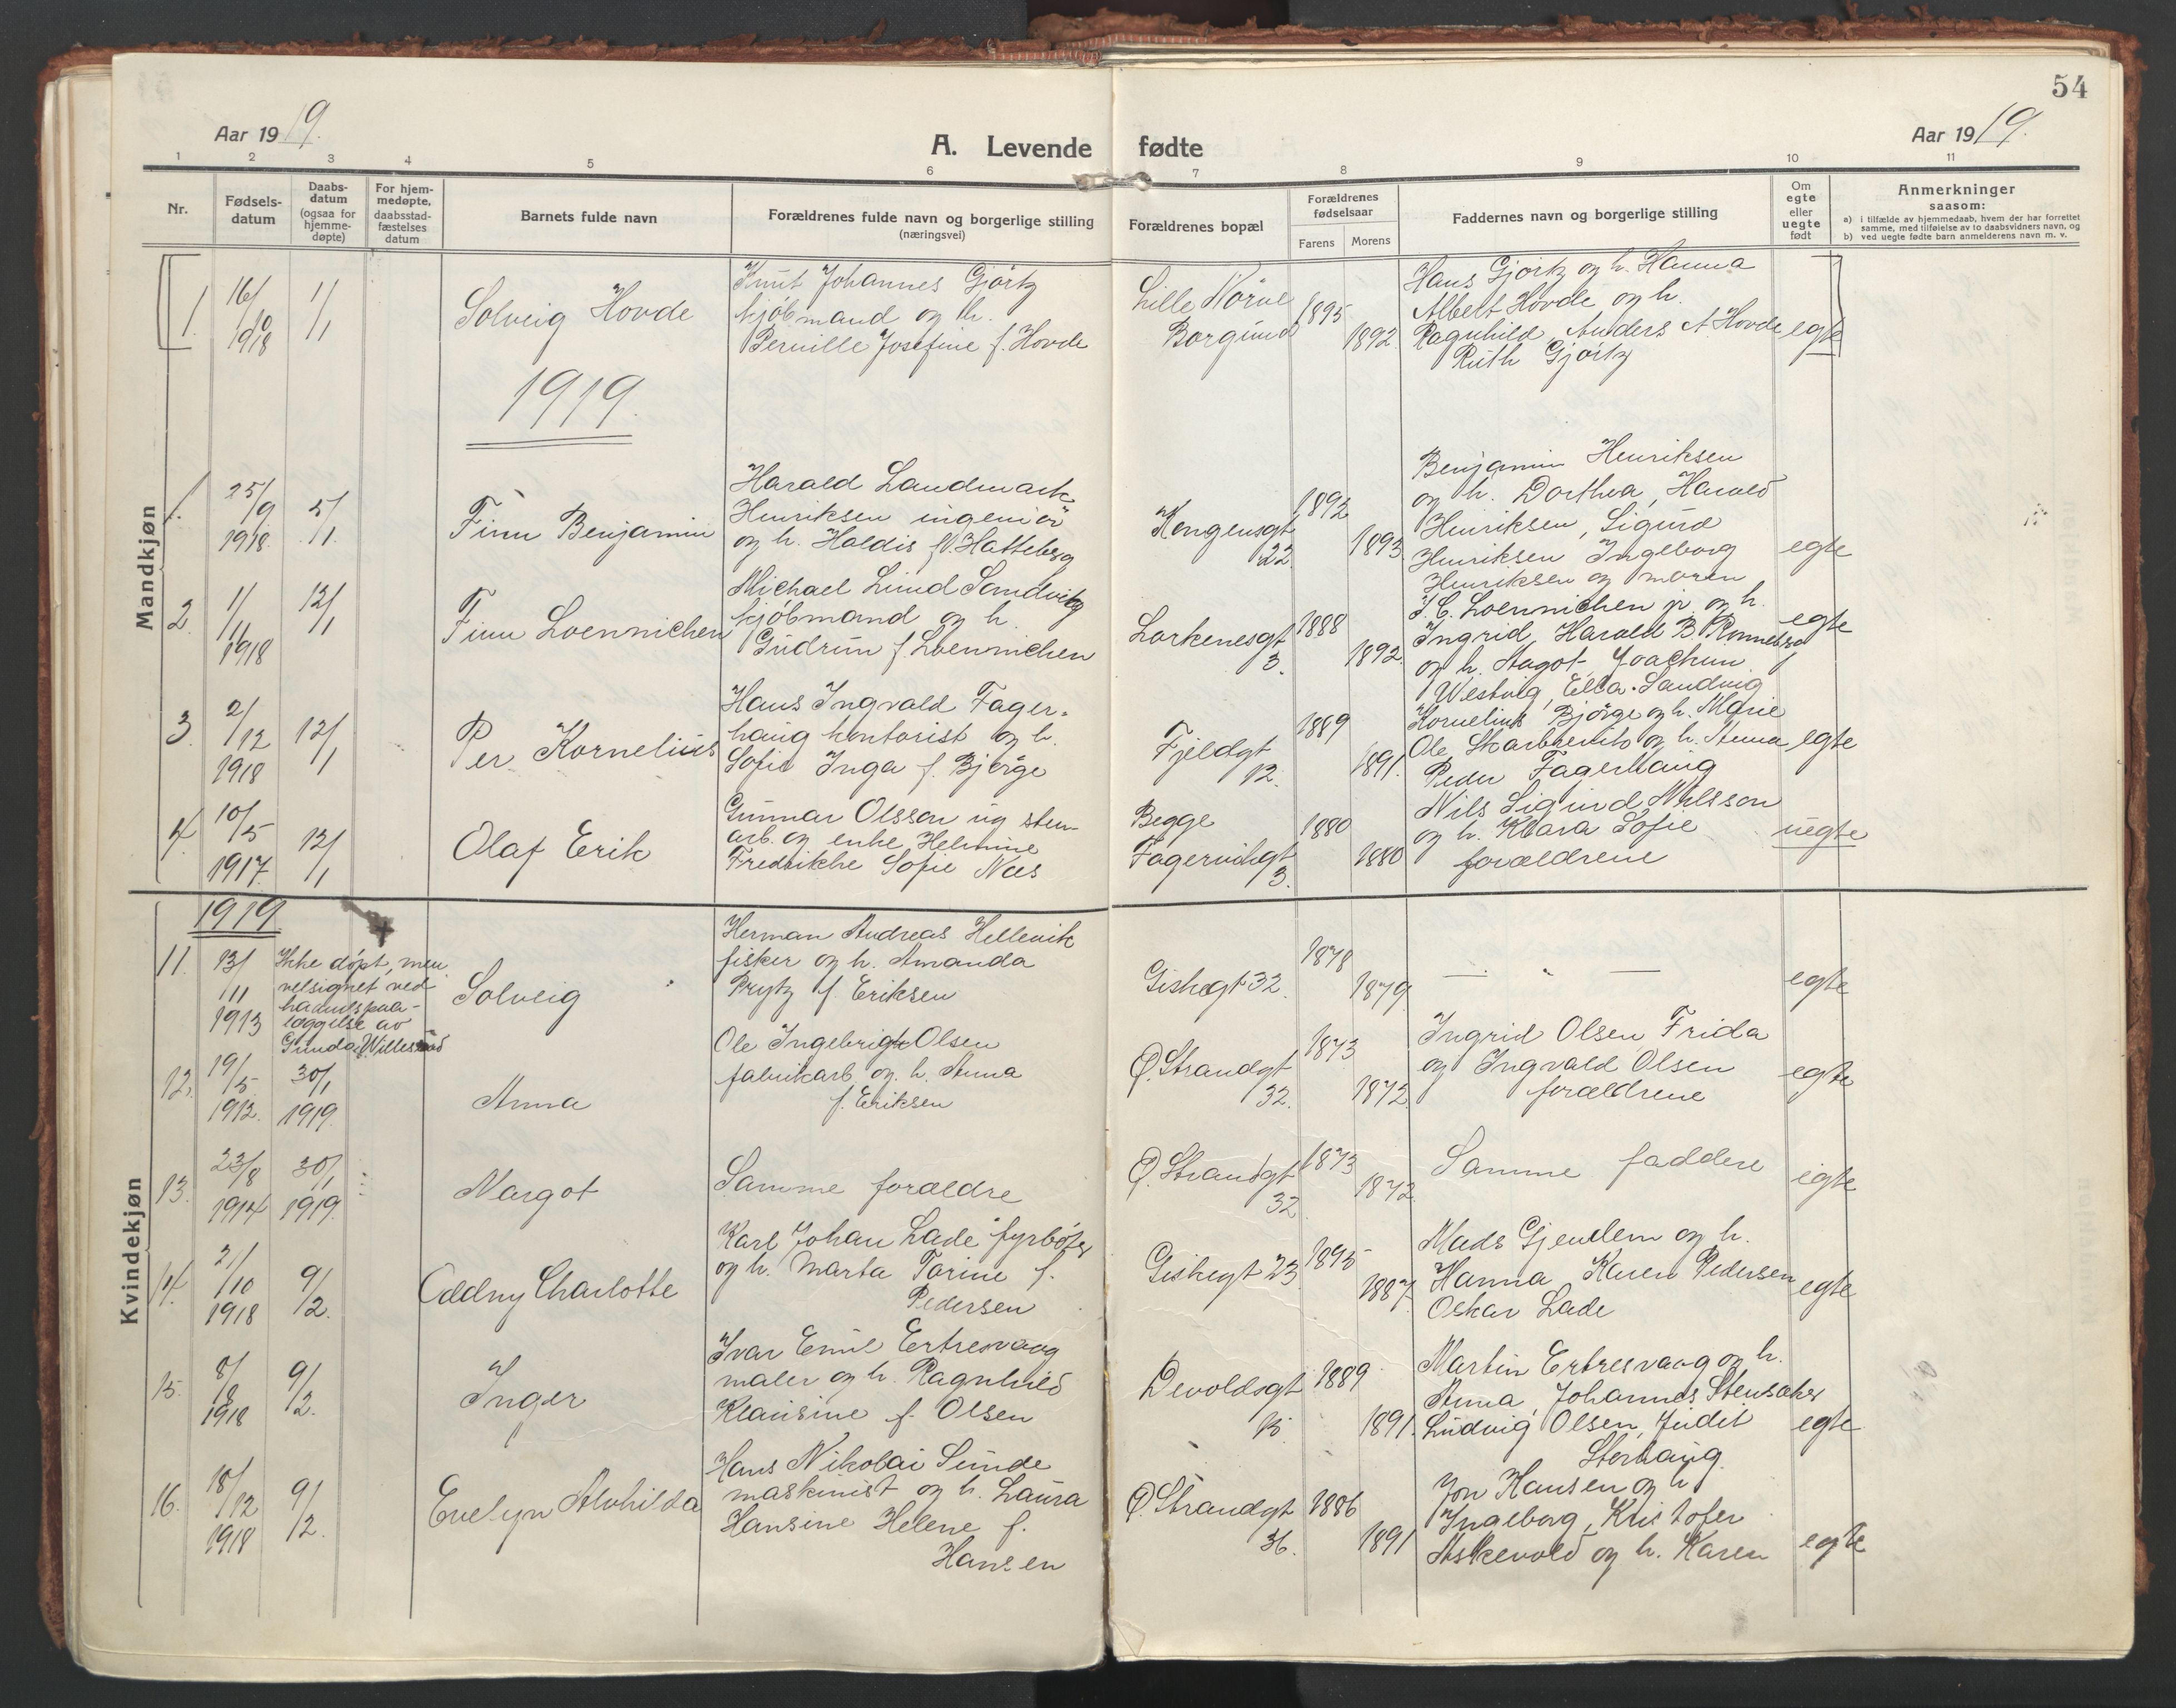 54
Aar 1919.
A. Levende fødte
Aar 1919.
1 2 3 4 5 6 7 8 9 10 11
Nr.
Fødsels-
datum
Daabs-
datum
(ogsaa for
hjemme-
døpte)
For hjem-
medøpte,
daabsstad-
fæstelses
datum
Barnets fulde navn
Forældrenes fulde navn og borgerlige stilling
(næringsvei)
Forældrenes bopæl
Forældrenes
fødselsaar
Farens Morens
Faddernes navn og borgerlige stilling
Om
egte
eller
uegte
født
Anmerkninger
saasom:
a) i tilfælde av hjemmedaab, hvem der har forrettet
samme, med tilføielse av to daabsvidners navn, og
b) ved uegte fødte barn anmelderens navn m. v.
Mandkjøn
1. 16/10 1918 1/1
Solveig Hovde
Knut Johannes Gjørtz
kjøbmand og h.
Pernille Josefine f. Hovde
Lille Nørve
Borgund
1895 1892.
Hans Gjørtz og h. Hanna
Albert Hovde og h.
Ragnhild, Anders A Hovde
Ruth Gjørtz
egte
1919.
1. 25/9 1918. 5/1.
Finn Benjamin
Harald Landmark
Henriksen ingeniør
og h. Haldis f. Hatteberg
Kongensgt
22.
1892 1893.
Benjamin Henriksen
og h. Dorthea, Harald
Henriksen, Sigurd
Henriksen Ingeborg
Henriksen og moren
egte
2. 1/11 1918 12/1
Finn Loennichen
Michael Lund Sandvig
kjøbmand og h.
Gudrun f. Loennichen
Lorkenesgt
3.
1888 1892.
J. C. Loennichen jr. og h.
Ingrid, Harald B. Rønneberg
og h. Aagot Joachim
Westvig, Ella Sandvig
egte
3. 2/12 1918 12/1
Per Kornelius
Hans Ingvald Fager-
haug kontorist og h.
Sofie Inga f. Bjørge
Fjeldgt
12.
1889 1891.
Kornelius Bjørge og h. Marie
Ole og h. Anna
Peder Fagerhaug
egte
4. 10/5 1917. 12/1
Olaf Erik
Gunnar Olsson ug sten-
arb. og enke Helmine
Fredrikke Sofie Næs
Begge
Fagervikgt
3.
1880 1880
Nils Sigurd Nilsson
og h. Klara Sofie
forældrene
uegte
Kvindekjøn
1919
11. 13/11 1913
Ikke døpt, men
velsignet ved
haandspaa-
læggelse av
Gunda Willersrud
Solveig
Herman Andreas Hellevik
fisker og h. Amanda
Prytz f. Eriksen
Giskegt 32.
1878 1879.
— " —
egte
12. 19/5 1912. 30/1 1919.
Anna
Ole Ingebrigt Olsen
fabrikarb. og h. Anna
f. Eriksen
Ø. Strandgt
32.
1873 1872.
Ingrid Olsen, Frida
og Ingvald Olsen
forældrene
egte
13. 23/8 1914 30/1 1919.
Margot
Samme forældre
Ø. Strandgt
32
1873 1872.
Samme faddere
egte
14. 21/10 1918 9/2.
Oddny Charlotte
Karl Johan Lade fyrbøter
og h. Marta Torine f.
Pedersen
Giskegt 23
1895 1887.
Mads Gjendem og h.
Hanna Karen Pedersen
Oskar Lade
egte
15. 8/8 1918 9/2.
Inger
Ivar Emil Ertresvaag
maler og h. Ragnhild
Klausine f. Olsen
Devoldsgt
15
1889 1891.
Martin Ertresvaag og h.
Anna, Johannes Stensaker
Ludvig Olsen, Judit
Storhaug
egte
16. 18/12 1918 9/2.
Evelyn Alvhilda
Hans Nikolai Sunde
maskinist og h. Laura
Hansine Helene f.
Hansen
Ø. Strandgt
36.
1886 1891
Jon Hansen og h
Ingeborg, Kristofer
Askevold og h. Karen
egte